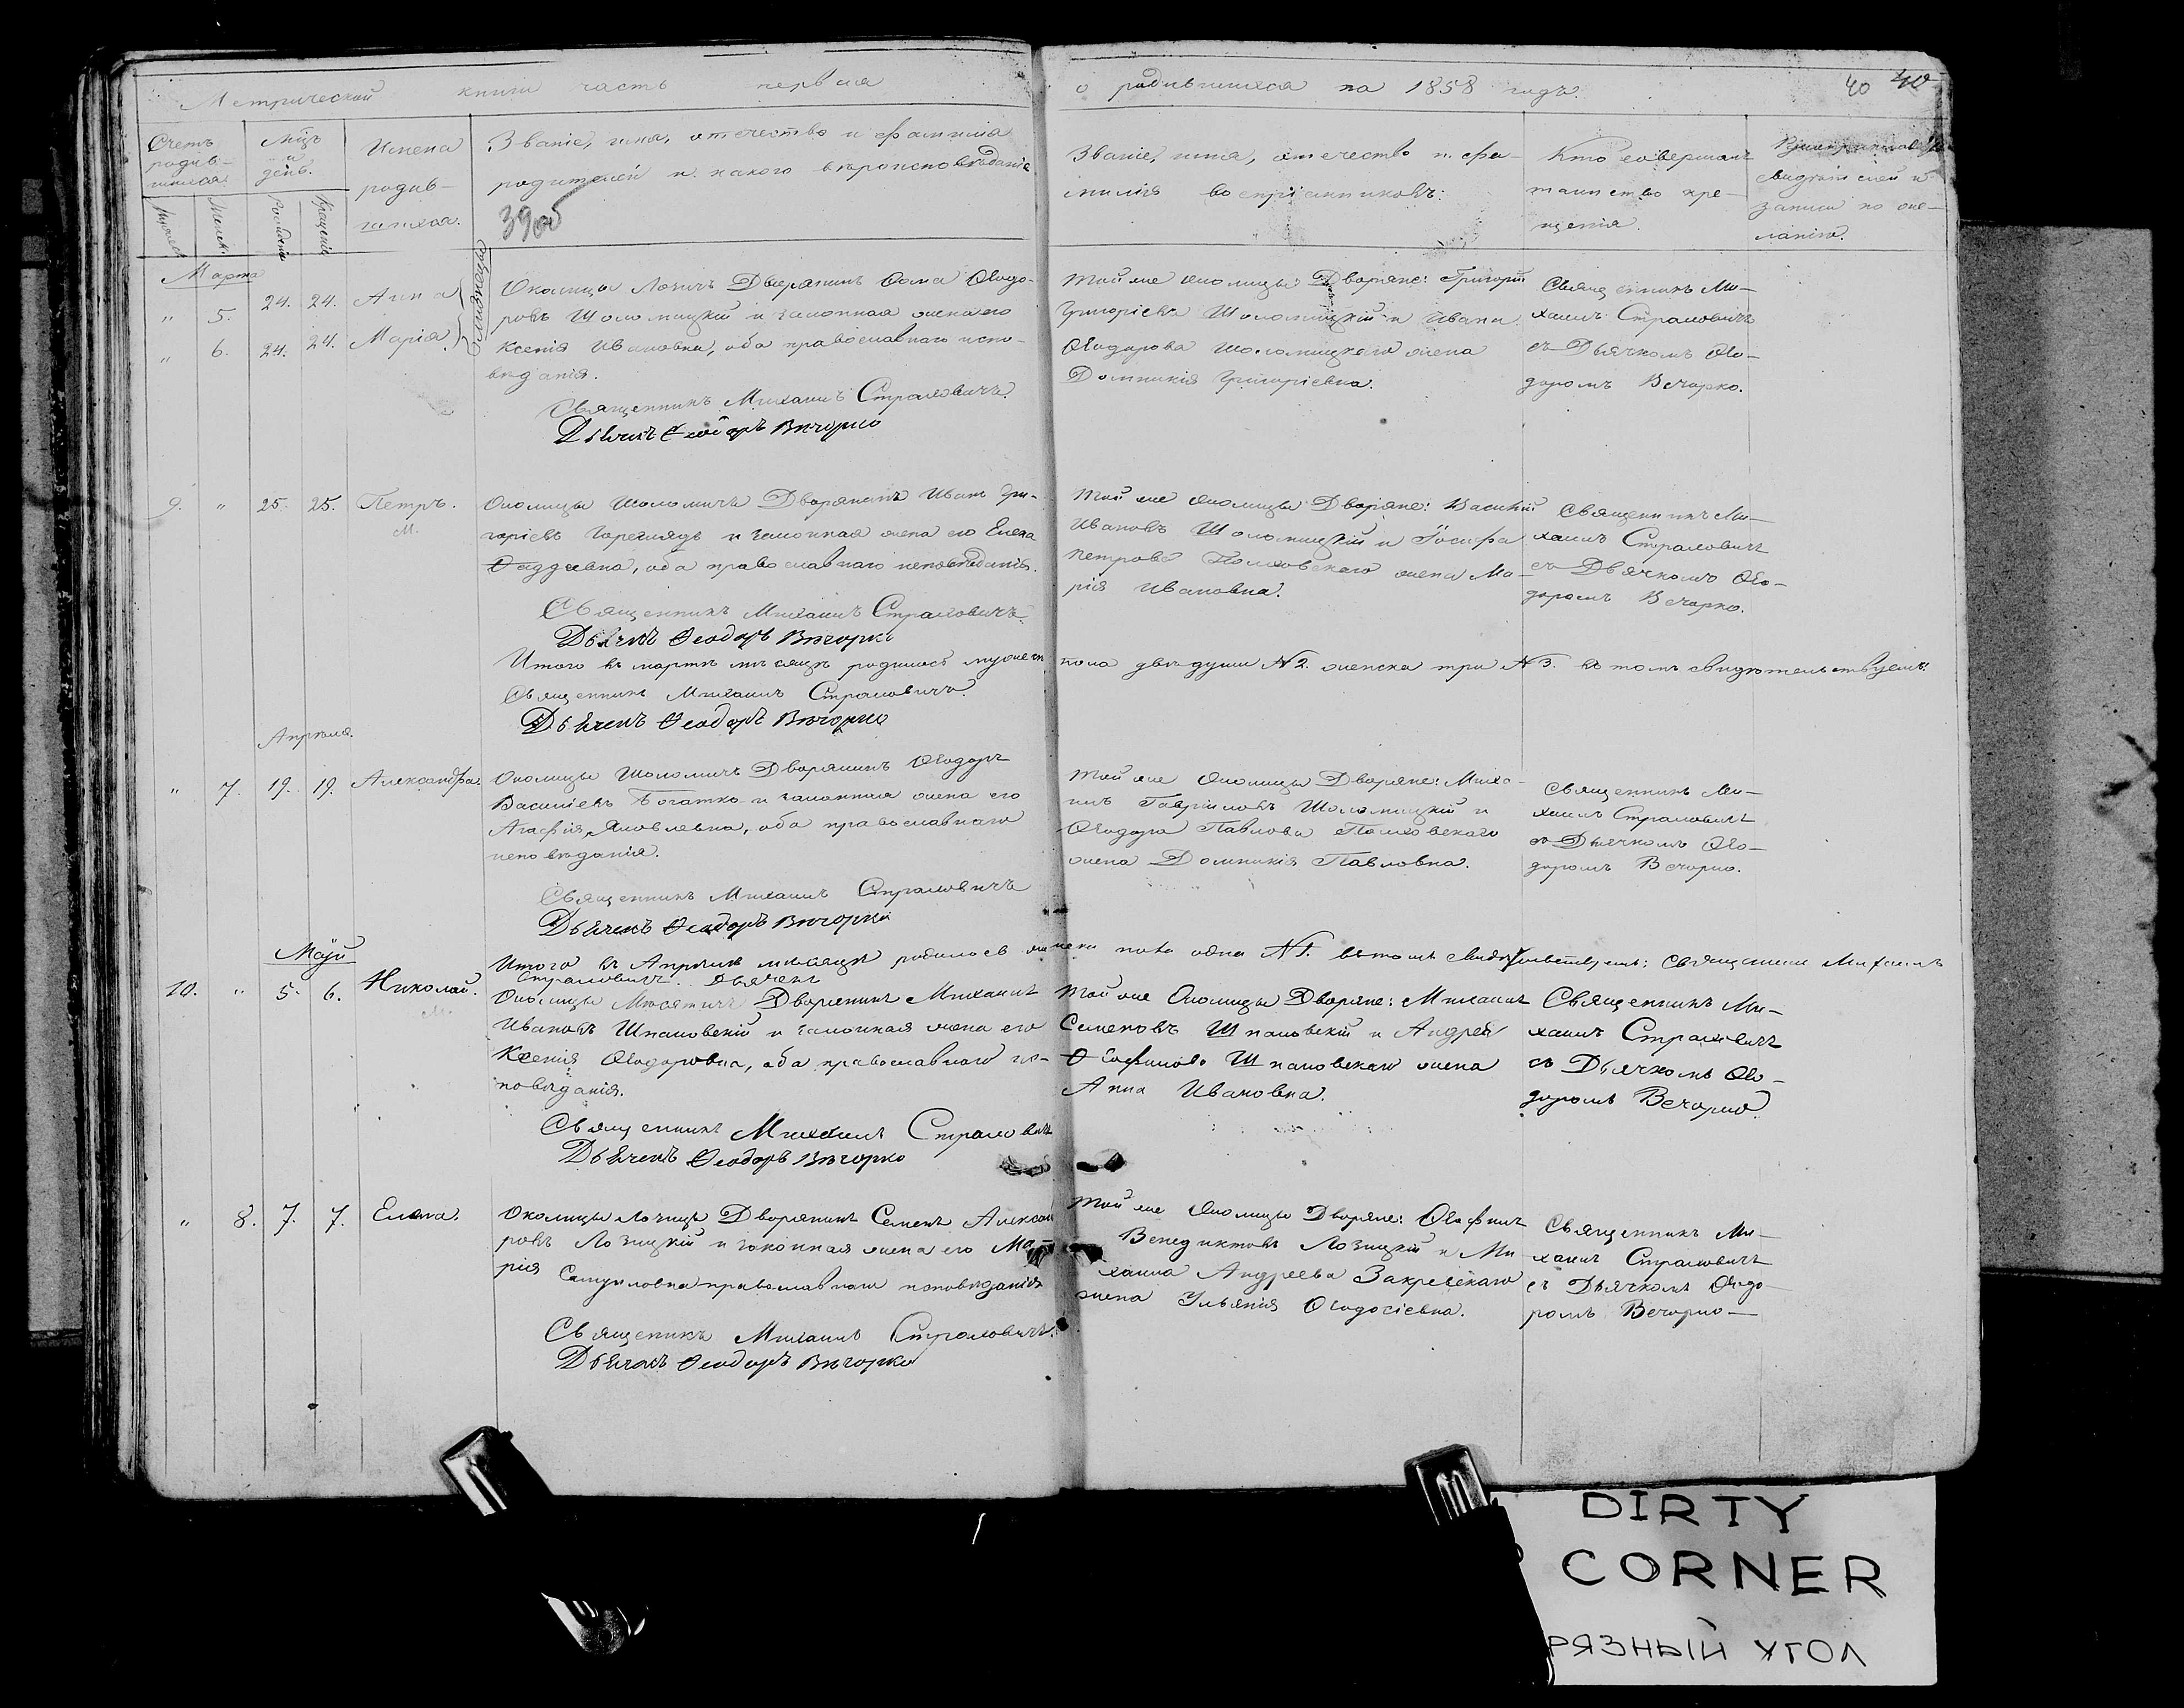 Метрической книги часть первая
о родившихся на 1858 годъ.
40 40
Счетъ родив-шихся.
Мцъ и день.
Имена родив-шихся.
Званіе, имя, отечество и фамилія
родителей и какого вѣроисповѣданія
39об
Званіе, имя, отечество и фа-
милія воспріемниковъ:
Кто совершалъ
таинство кре-
щенія.
свидѣтелей и
записи по же-
ланію.
Мужеск
Женск.
Рожденія
Крещенія
Марта
" 5. 24. 24. Анна
" 6. 24. 24. Марія.
близнецы
Околицы Дворянинъ Ѳома Ѳеодо-
ровъ Шоломицкій и законная жена его
Ксенія Ивановна, оба православнаго испо-
вѣданія.
Священникъ Михаилъ Страховичъ.
Дьячекъ Ѳеодоръ Вѣчорко
Той же околицы Дворяне: Григорій
Григоріевъ Шоломицкій и Ивана
Ѳеодорова Шоломицкаго жена
Домникія Григоріевна.
Священникъ Ми-
хаилъ Страховичъ
съ Дьячкомъ Ѳео-
доромъ Вечорко.
9. " 25. 25. Петръ.
М.
Околицы Шоломичъ Дворянинъ Иванъ Гри-
горіевъ Гореглядъ и законная жена его Елена
Ѳаддеевна, оба православнаго исповѣданія.
Священникъ Михаилъ Страховичъ.
Дьячекъ Ѳеодоръ Вѣчорко
Той же околицы Дворяне: Василій
Ивановъ Шоломицкій и Іосифа
Петрова жена Ма-
рія Ивановна.
Священникъ Ми-
хаилъ Страховичъ
съ Дьячкомъ Ѳео-
доромъ Вечорко.
Итого въ мартѣ мѣсяцѣ родилось мужеска пола двѣ души № 2. женска три № 3. въ томъ свидѣтельствуемъ:
Священникъ Михаилъ Страховичъ.
Дьячекъ Ѳеодоръ Вѣчорко
Апрѣля.
" 7. 19. 19. Александра.
Околицы Шоломичъ Дворянинъ Ѳеодоръ
Василіевъ Богатко и законная жена его
Агафія Яковлевна, оба православнаго
исповѣданія.
Священникъ Михаилъ Страховичъ
Дьячекъ Ѳеодоръ Вѣчорко
Той же околицы Дворяне: Миха-
илъ Гавріиловъ Шоломицкій и
Ѳеодора Павлова
жена Домникія Павловна.
Священникъ Ми-
хаилъ Страховичъ
съ Дьячкомъ Ѳео-
доромъ Вечорко.
Итого въ Апрѣлѣ мѣсяцѣ родилось женска пола одна № 1. въ томъ свидѣтельствуемъ: Священникъ Михаилъ
Страховичъ. Дьячекъ
Май
10. " 5. 6. Николай.
М.
Околицы Дворянинъ Михаилъ
Ивановъ Шпаковскій и законная жена его
Ксенія Ѳеодоровна, оба православнаго ис-
повѣданія.
Священникъ Михаилъ Страховичъ
Дьячекъ Ѳеодоръ Вѣчорко
Той же Околицы Дворяне: Михаилъ
Семеновъ Шпаковскій и Андрея
Ѳеофилова Шпаковскаго жена
Анна Ивановна.
Священникъ Ми-
хаилъ Страховичъ
съ Дьячкомъ Ѳео-
доромъ Вечорко.
" 8. 7. 7. Елена.
Околицы Дворянинъ Семенъ
ровъ Лозицкій и законная жена его Ма-
рія Самуиловна православнаго исповѣданія
Священникъ Михаилъ Страховичъ.
Дьячекъ Ѳеодоръ Вѣчорко
Той же Околицы Дворяне:
Венедиктовъ Лозицкій и Ми-
хаила Андреева Закревскаго
жена Ульянія Ѳеодосіевна.
Священникъ Ми-
хаилъ Страховичъ
съ Дьячкомъ Ѳеодо-
ромъ Вечорко
DIRTY
CORNER
РЯЗНЫЙ УГОЛ